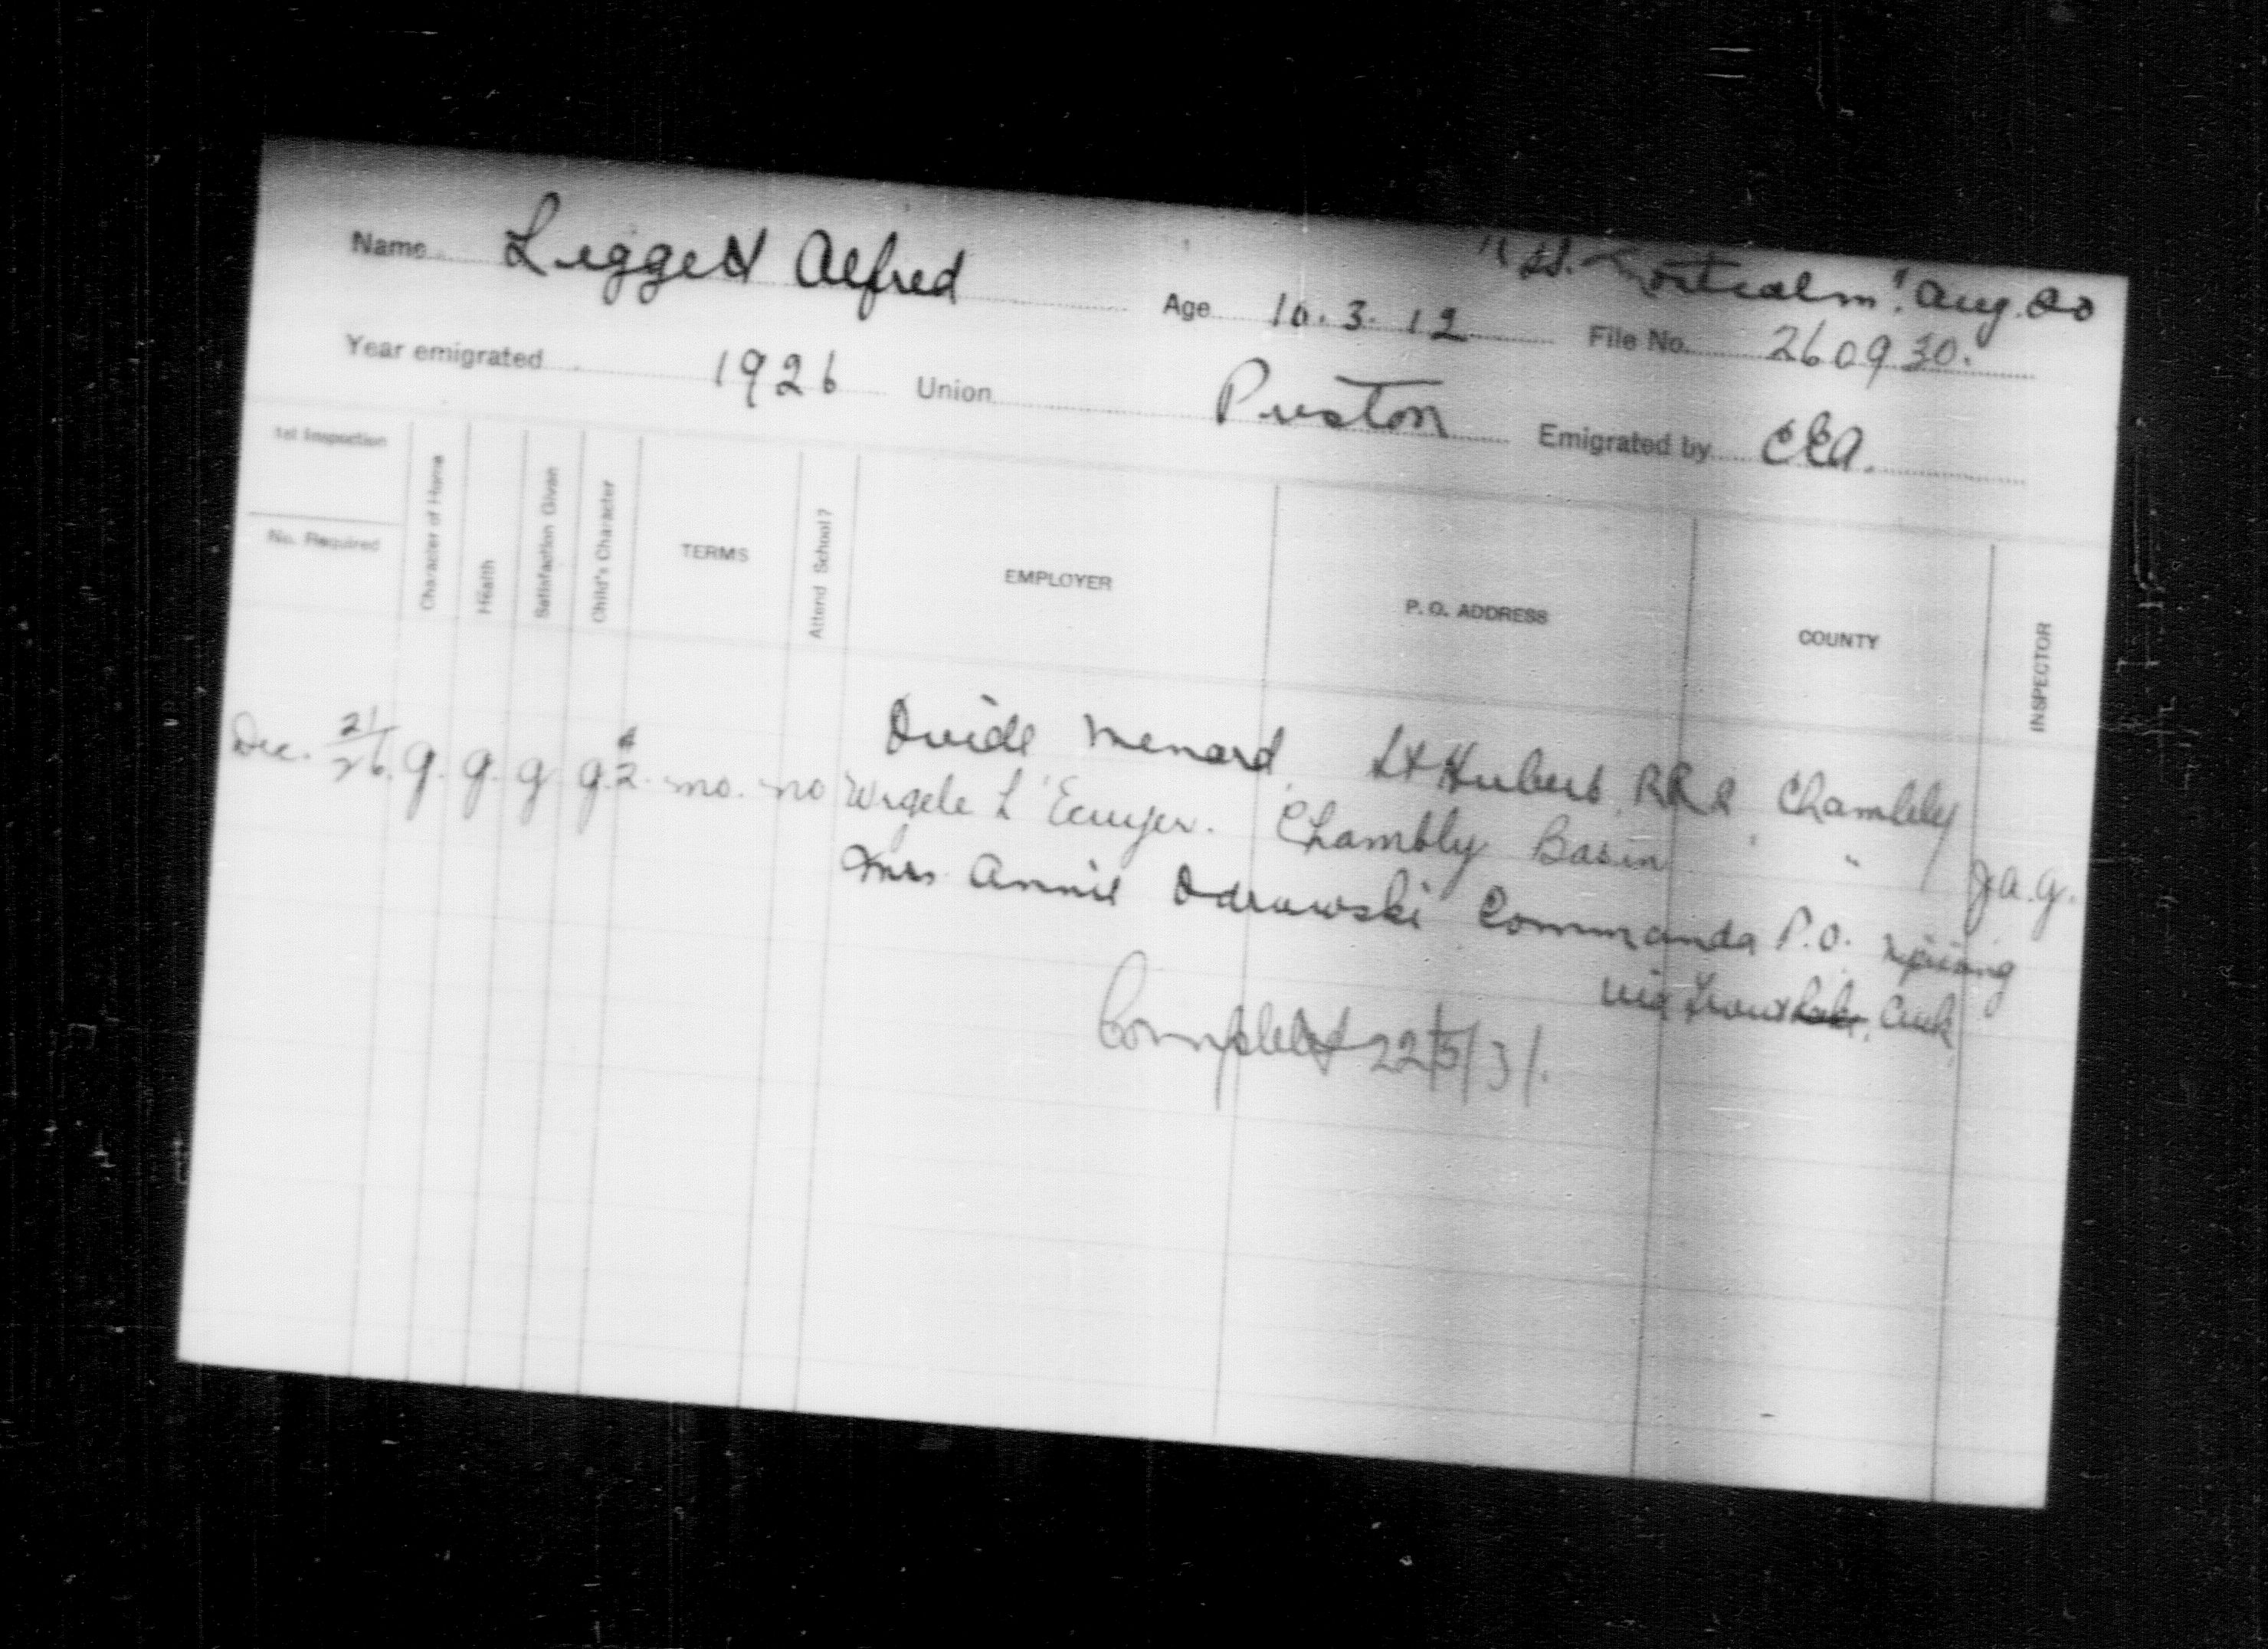 "SS. Montcalm". Aug. 20
Name Leggett Alfred Age 10.3.12 File No. 260930.
Year emigrated 1926 Union Preston Emigrated by CEA.
1st Inspection
No. Required
Character of Home
Health
Satisfaction Given
Child's Character
TERMS
Attend School?
EMPLOYER
P. O. ADDRESS
COUNTY
INSPECTOR
Ovide Menard St Hubert, RR2 Chambly
Dec. 21/26. g. g. g. g. 2. mo. no L'Ecuyer. Chambly Basin " J.A.G.
Mrs Annie Odrowski Commanda P.O. Nipissing
via Trout Lake, Creek
Completed 22/5/31.